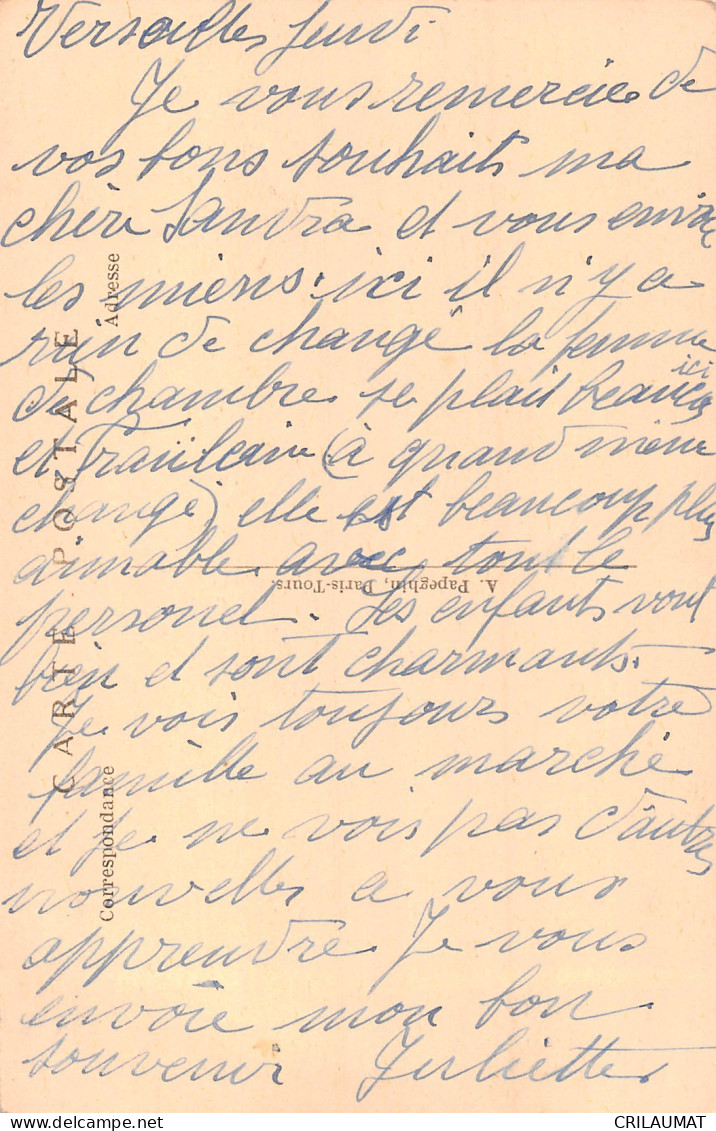 Versailles Jeudi
Je vous remercie de
vos bons souhaits ma
chère Sandra et vous envoie
les miens. ici il n'y a
rien de changé la femme
de chambre se plait beaucoup ici
et (à quand même
changé) elle est beaucoup plus
aimable avec tout le
personel. Les enfants vont
bien et sont charmants.
Je vois toujours votre
famille au marché
et je ne vois pas d'autres
nouvelles a vous
apprendre. Je vous
envoie mon bon
souvenir Juliette
CARTE POSTALE
Correspondance
Adresse
A. Papeghin, Paris-Tours.
CRILAUMAT